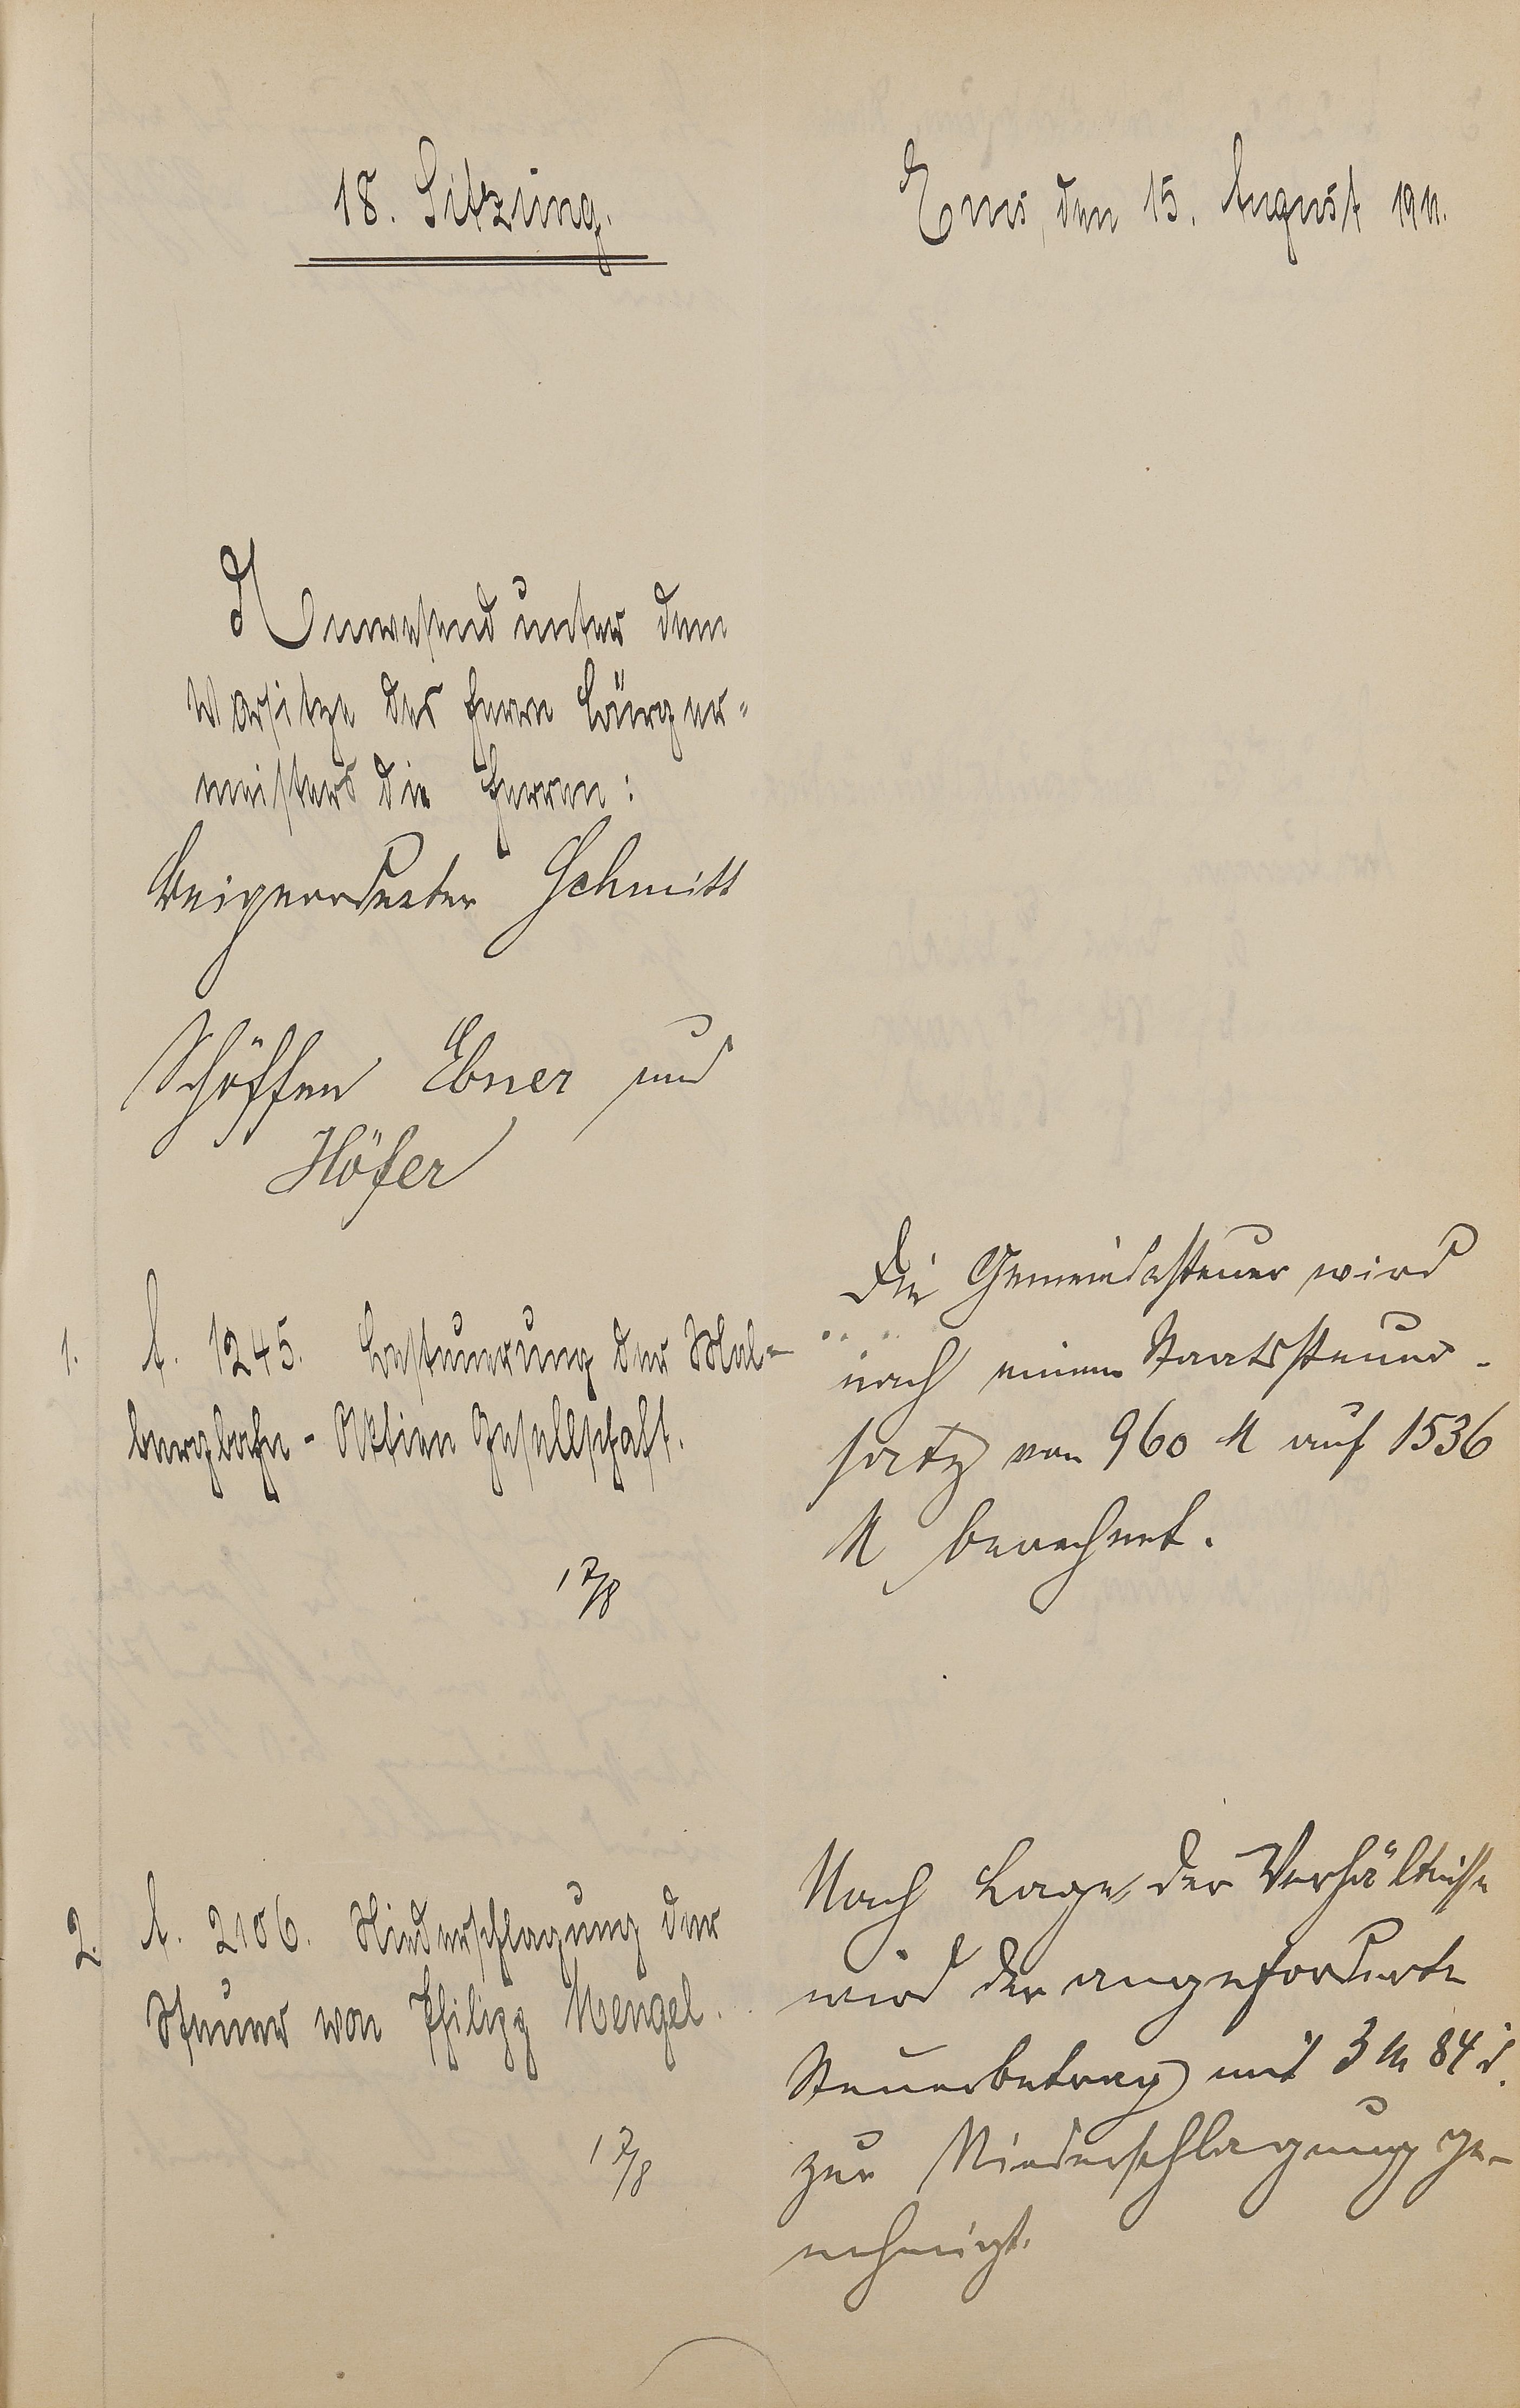 18. Sitzung.
Ems, den 15. August 1911.
Anwesend unter dem
Vorsitze des Herrn Bürger-
meisters die Herren:
Beigeordneter Schmitt
Schöffen Ebner und
Höfer
1. A. 1245. Besteuerung der Mal-
bergbahn-Aktien Gesellschaft.
17/8
Die Gemeindesteuer wird
nach einem Staatssteuer-
satz von 960 M auf 1536
M berechnet.
2. A. 2106. Niederschlagung der
Steuer von Philipp Mengel.
17/8
Nach Lage der Verhältnisse
wird der angeforderte
Steuerbetrag mit 3 M 84 d.
zur Niederschlagung ge-
nehmigt.